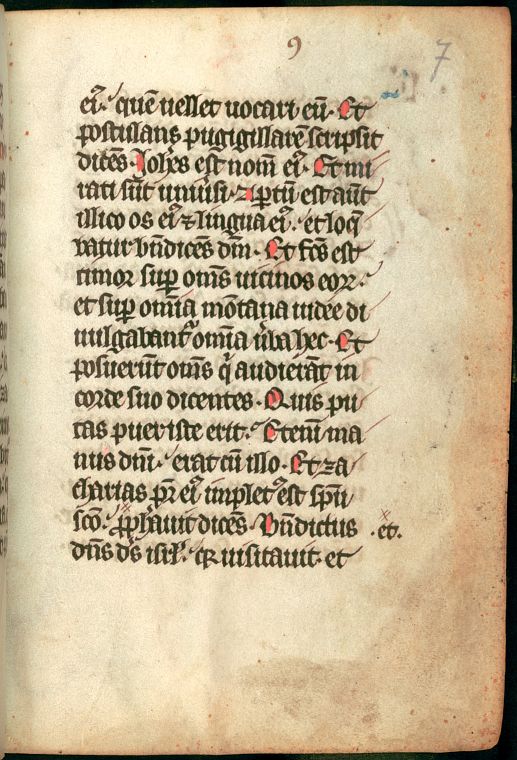 9
7
eiꝰ quē uellet uocari eū · Et
postulans pugigillarē scripsit
dicēs · Joh̄es est nom̄ eiꝰ · Et mi
rati sūt uniūsi · ⁊ aꝑtū est aūt
illico os eiꝰ ⁊ lingua eiꝰ · et loq̄
batur bn̄dicēs dm̄ · Et fc̄s est
timor suꝑ om̄s uicinos eoꝝ ·
et suꝑ om̄ia mōtana iudee di
uulgabant᷑ om̄ia ūba hec · Et
posuerūt om̄s q̄ audierāt in
corde suo dicentes · Quis pu
tas puer iste erit · Eteni᷑ ma
nus dn̄i · erat cū illo · Et za
charias pr̄ eiꝰ implet᷑ est spū
scō · ꝓph̄auit dicēs · Bn̄dictus · et ·
dn̄s ds̄ isrl̄ · qꝛ uisitauit · et